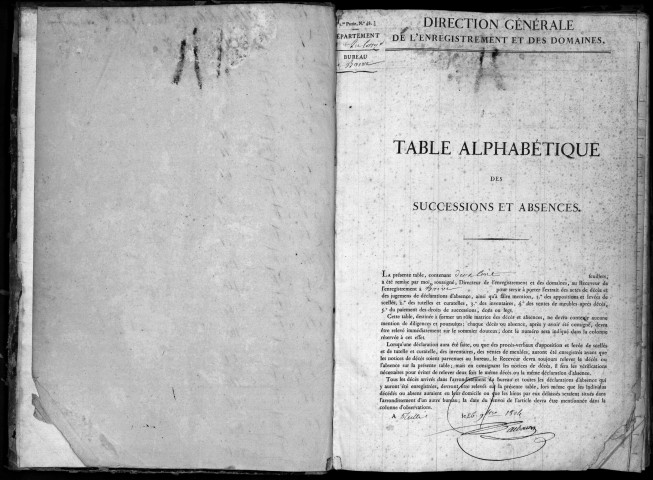 DIRECTION GÉNÉRALE
DE L'ENREGISTREMENT ET DES DOMAINES.
DÉPARTEMENT
BUREAU
TABLE ALPHABÉTIQUE
DES
SUCCESSIONS ET ABSENCES.
La présente table, contenant deux cent feuillets,
a été remise par moi, soussigné, Directeur de l'enregistrement et des domaines, au Receveur de
l'enregistrement à pour servir à porter l'extrait des actes de décès et
des jugemens de déclarations d'absence, ainsi qu'à faire mention, 1.° des appositions et levées de
scellés, 2.° des tutelles et curatelles, 3.° des inventaires, 4.° des ventes de meubles après décès,
5.° du paiement des droits de successions, dons ou legs.
Cette table, destinée à former un rôle matrice des décès et absences, ne devra contenir aucune
mention de diligences et poursuites; chaque décès ou absence, après y avoir été consigné, devra
être relevé immédiatement sur le sommier douteux, dont le numéro sera indiqué dans la colonne
réservée à cet effet.
Lorsqu'une déclaration aura été faite, ou que des procès-verbaux d'apposition et levée de scellés
et de tutelle et curatelle, des inventaires, des ventes de meubles, auront été enregistrés avant que
les notices de décès soient parvenues au bureau, le Receveur devra toujours relever les décès ou
l'absence sur la présente table; mais en consignant les notices de décès, il fera les vérifications
nécessaires pour éviter de relever deux fois le même décès ou la même déclaration d'absence.
Tous les décès arrivés dans l'arrondissement du bureau et toutes les déclarations d'absence qui
y auront été enregistrées, devront être relevés sur la présente table, lors même que les individus
décédés ou absens auraient eu leur domicile ou que les biens par eux délaissés seraient situés dans
l'arrondissement d'un autre bureau; la date du renvoi de l'article devra être mentionnée dans la
colonne d'observations.
A Tulle le 26 9bre 1814